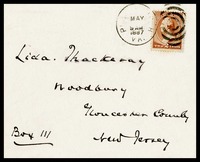 MAY
1887
Lida. Thackeray
Woodbury
Gloucester County
Box 111
New Jersey